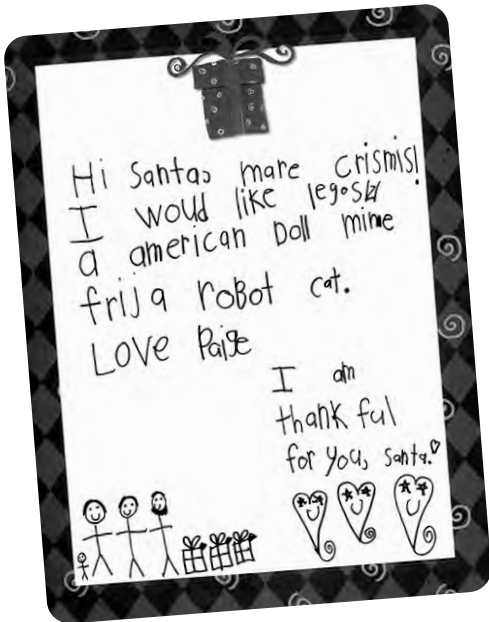 Hi Santa, mare crismis!
I would like legos
a american Doll mine
frija robot cat.
Love Paige
I am
thankful
for you, Santa.